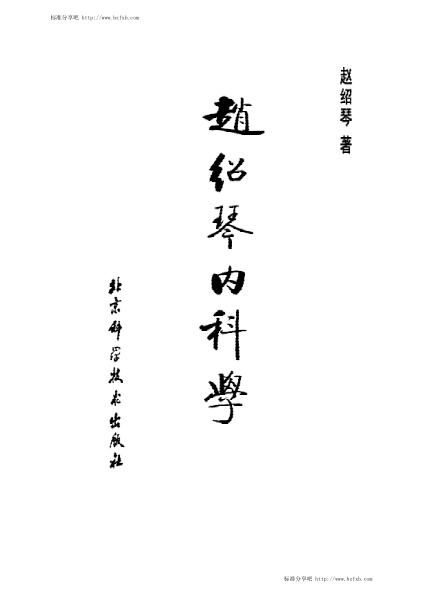 标准分享吧 http://www.bzfxb.com
赵绍琴 著
趙紹琴内科學
北京科学技术出版社
标准分享吧 http://www.bzfxb.com